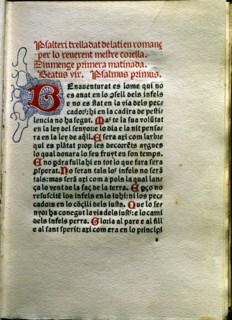 Psalteri trelladat de lati en romanç
per lo reuerent mestre corella.
Diumenge primera matinada.
Beatus vir. Psalmus primus.
Benauenturat es lome qui no
es anat en ꝯsell dels infels
e no es stat en la via dels pec
cadors: hi en la cadira de pesti
lencia no ha segut. Mas te la sua volũtat
en la ley del senyor: e lo dia e la nit pensa
ra en la ley de aqll. E sera axi com larbre
qui es plãtat prop les decorrẽts aygues
lo qual donara lo seu fruyt en son temps.
E no ꝑdra fulla: hi en tot lo que fara sera
ꝓsperat. No seran tals los infels no seran
tals: mas serã axi com a pols la qual lan
ça lo vent de la faç de la terra. E ꝑço no
resuscitẽ los infels en lo iuhi: ni los pec
cadors en lo cõcili dels iusts. Que lo se
nyor ha conegut la via dels iusts: e lo cami
dels infels perra. Gloria al pare e al fill
e al sant sperit: axi com era en lo principi